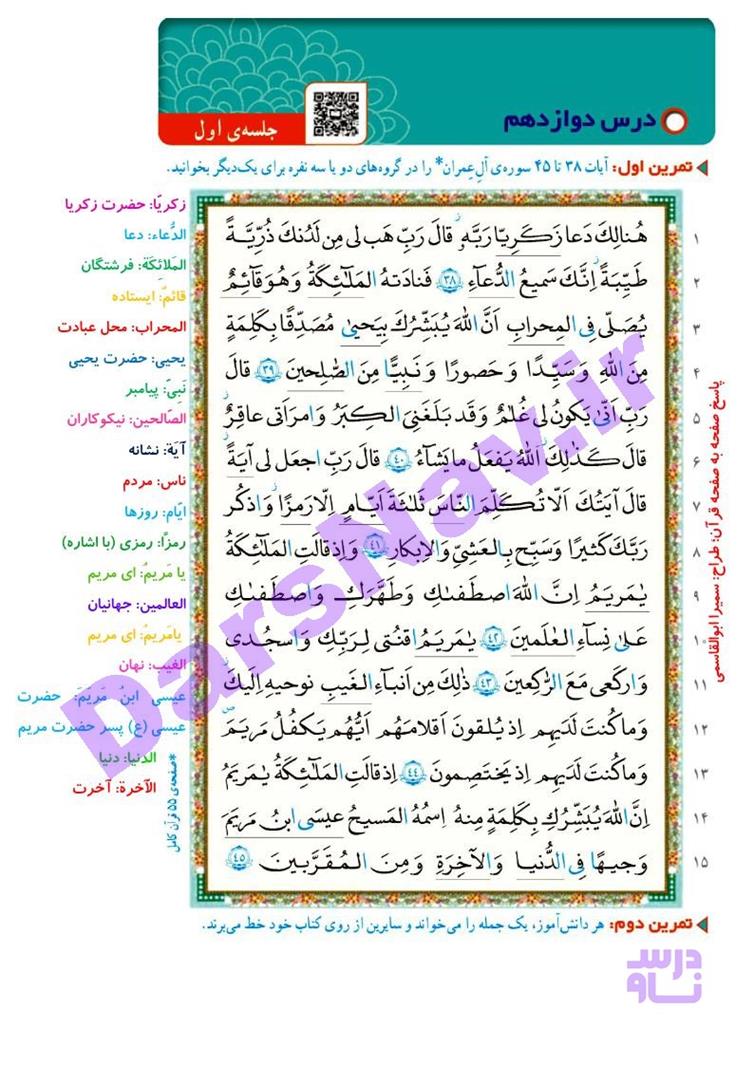 درس دوازدهم
جلسه‌ی اول
تمرین اول: آیات ۳۸ تا ۴۵ سوره‌ی آل‌عِمران* را در گروه‌های دو یا سه نفره برای یک‌دیگر بخوانید.
۱ هُنالِكَ دَعا زَكَرِيّا رَبَّهُ قالَ رَبِّ هَب لى مِن لَدُنكَ ذُرِّيَّةً
۲ طَيِّبَةً اِنَّكَ سَميعُ الدُّعآءِ ۳۸ فَنادَتهُ المَلٰٓئِكَةُ وَ هُوَ قآئِمٌ
۳ يُصَلّى فِى المِحرابِ اَنَّ اللّٰهَ يُبَشِّرُكَ بِيَحيىٰ مُصَدِّقًا بِكَلِمَةٍ
۴ مِنَ اللّٰهِ وَ سَيِّدًا وَ حَصورًا وَ نَبِيًّا مِنَ الصّٰلِحينَ ۳۹ قالَ
۵ رَبِّ اَنّىٰ يَكونُ لى غُلٰمٌ وَ قَد بَلَغَنِىَ الكِبَرُ وَ امرَاَتى عاقِرٌ
۶ قالَ كَذٰلِكَ اللّٰهُ يَفعَلُ ما يَشآءُ ۴۰ قالَ رَبِّ اجعَل لى آيَةً
۷ قالَ آيَتُكَ اَلّا تُكَلِّمَ النّاسَ ثَلٰثَةَ اَيّامٍ اِلّا رَمزًا وَ اذكُر
۸ رَبَّكَ كَثيرًا وَ سَبِّح بِالعَشِىِّ وَ الاِبكارِ ۴۱ وَ اِذ قالَتِ المَلٰٓئِكَةُ
۹ يٰمَريَمُ اِنَّ اللّٰهَ اصطَفىٰكِ وَ طَهَّرَكِ وَ اصطَفىٰكِ
۱۰ عَلىٰ نِسآءِ العٰلَمينَ ۴۲ يٰمَريَمُ اقنُتى لِرَبِّكِ وَ اسجُدى
۱۱ وَ اركَعى مَعَ الرّٰكِعينَ ۴۳ ذٰلِكَ مِن اَنبآءِ الغَيبِ نوحيهِ اِلَيكَ
۱۲ وَ ما كُنتَ لَدَيهِم اِذ يُلقونَ اَقلامَهُم اَيُّهُم يَكفُلُ مَريَمَ
۱۳ وَ ما كُنتَ لَدَيهِم اِذ يَختَصِمونَ ۴۴ اِذ قالَتِ المَلٰٓئِكَةُ يٰمَريَمُ
۱۴ اِنَّ اللّٰهَ يُبَشِّرُكِ بِكَلِمَةٍ مِنهُ اسمُهُ المَسيحُ عيسَى ابنُ مَريَمَ
۱۵ وَجيهًا فِى الدُّنيا وَ الآخِرَةِ وَ مِنَ المُقَرَّبينَ ۴۵
زکریّا: حضرت زکریا
الدُّعاء: دعا
المَلائِکَة: فرشتگان
قائمٌ: ایستاده
المحراب: محل عبادت
یحیی: حضرت یحیی
نَبیّ: پیامبر
الصّالحین: نیکوکاران
آیَة: نشانه
ناس: مردم
ایّام: روزها
رمزًا: رمزی (با اشاره)
یا مَریمُ: ای مریم
العالمین: جهانیان
یامَریمُ: ای مریم
الغَیب: نهان
عیسی ابنُ مَریَمَ: حضرت
عیسی (ع) پسر حضرت مریم
الدنیا: دنیا
الآخرة: آخرت
*صفحه‌ی ۵۵ قرآن کامل
پاسخ صفحه به صفحه قرآن: طراح: سمیرا ابوالقاسمی
تمرین دوم: هر دانش‌آموز، یک جمله را می‌خواند و سایرین از روی کتاب خود خط می‌برند.
DarsNav.ir
درس
ناو